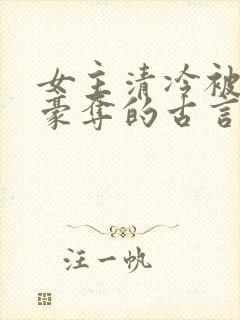 女主清冷被
豪夺的古言
汪一帆